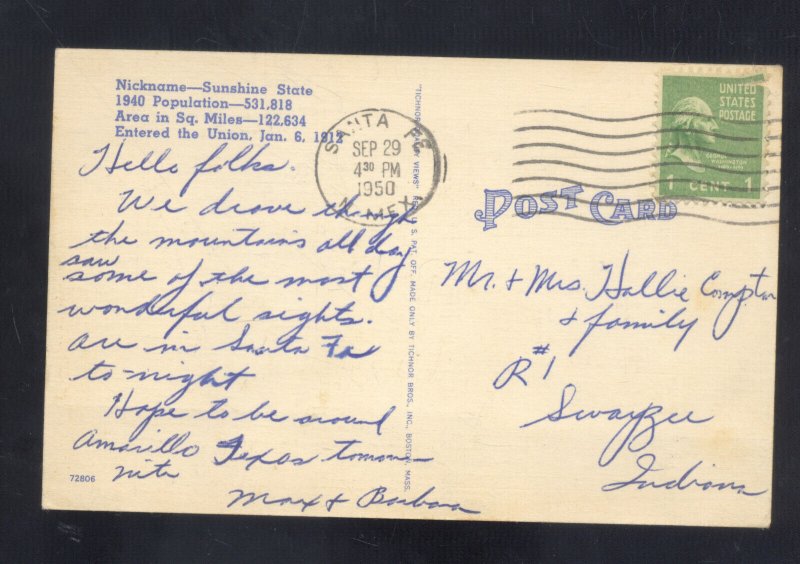 Nickname—Sunshine State
1940 Population—531,818
Area in Sq. Miles—122,634
Entered the Union, Jan. 6, 1912
Hello folks.
We drove through
the mountains all day
saw
some of the most
wonderful sights.
are in Santa Fa
to-night
Hope to be around
Amarillo Texas tomorrow
nite
Max & Barbara
72806
SANTA FE
SEP 29
4 30 PM
1950
N. MEX.
"TICHNOR QUALITY VIEWS" REG. U. S. PAT. OFF. MADE ONLY BY TICHNOR BROS., INC., BOSTON, MASS.
UNITED
STATES
POSTAGE
GEORGE
WASHINGTON
1 CENT 1
POST CARD
Mr. & Mrs. Hallie Compton
& family
R#1
Swayzee
Indiana